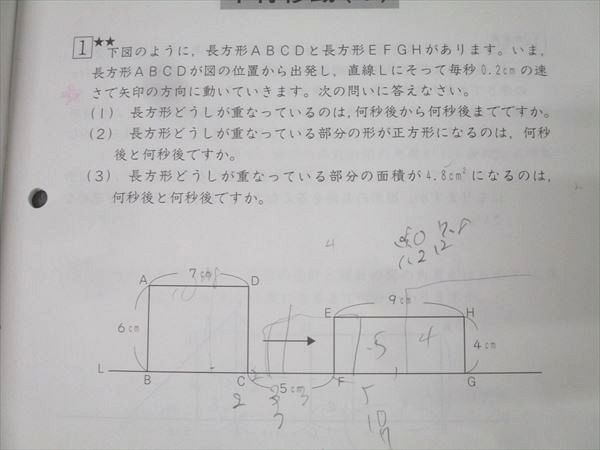 1 ★★ 下図のように,長方形ABCDと長方形EFGHがあります。いま,
長方形ABCDが図の位置から出発し,直線Lにそって毎秒0.2cmの速
さで矢印の方向に動いていきます。次の問いに答えなさい。
(1) 長方形どうしが重なっているのは,何秒後から何秒後までですか。
(2) 長方形どうしが重なっている部分の形が正方形になるのは,何秒
後と何秒後ですか。
(3) 長方形どうしが重なっている部分の面積が4.8cm²になるのは,
何秒後と何秒後ですか。
4
A 7cm D
E 9cm H
6cm
5 4
4cm
L B C 5cm F G
2 3 3 5
7 10
7